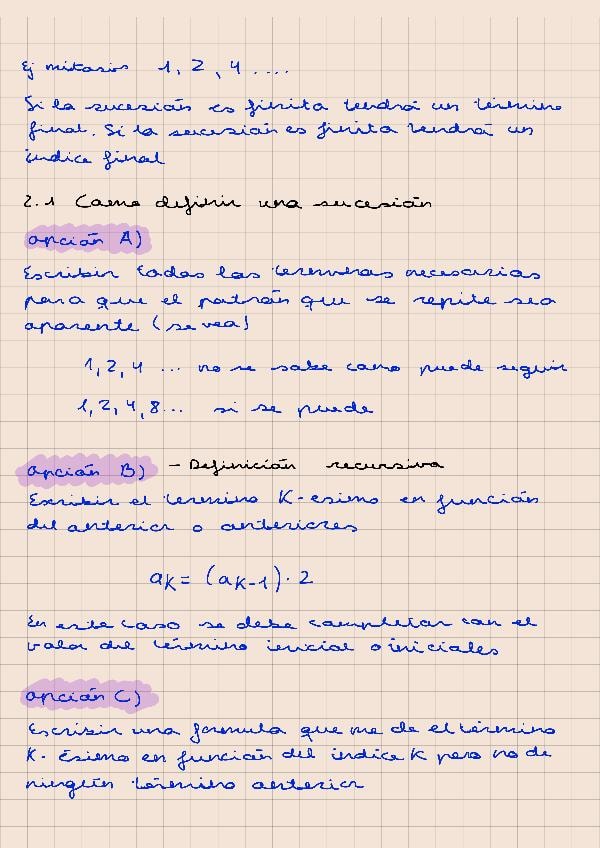 Ej mitosis 1, 2, 4 ....
Si la sucesión es finita tendrá un término
final. Si la sucesión es finita tendrá un
índice final
2.1 Como definir una sucesión
opción A)
Escribir todos los terminos necesarios
para que el patrón que se repite sea
aparente (se vea)
1, 2, 4 ... no se sabe como puede seguir
1, 2, 4, 8... si se puede
opción B) - Definición recursiva
Escribir el termino K-esimo en función
del anterior o anteriores
aK = (aK-1) · 2
En este caso se debe completar con el
valor del término inicial o iniciales
opción C)
Escribir una formula que me de el término
K- Esimo en función del indice K pero no de
ningún término anterior